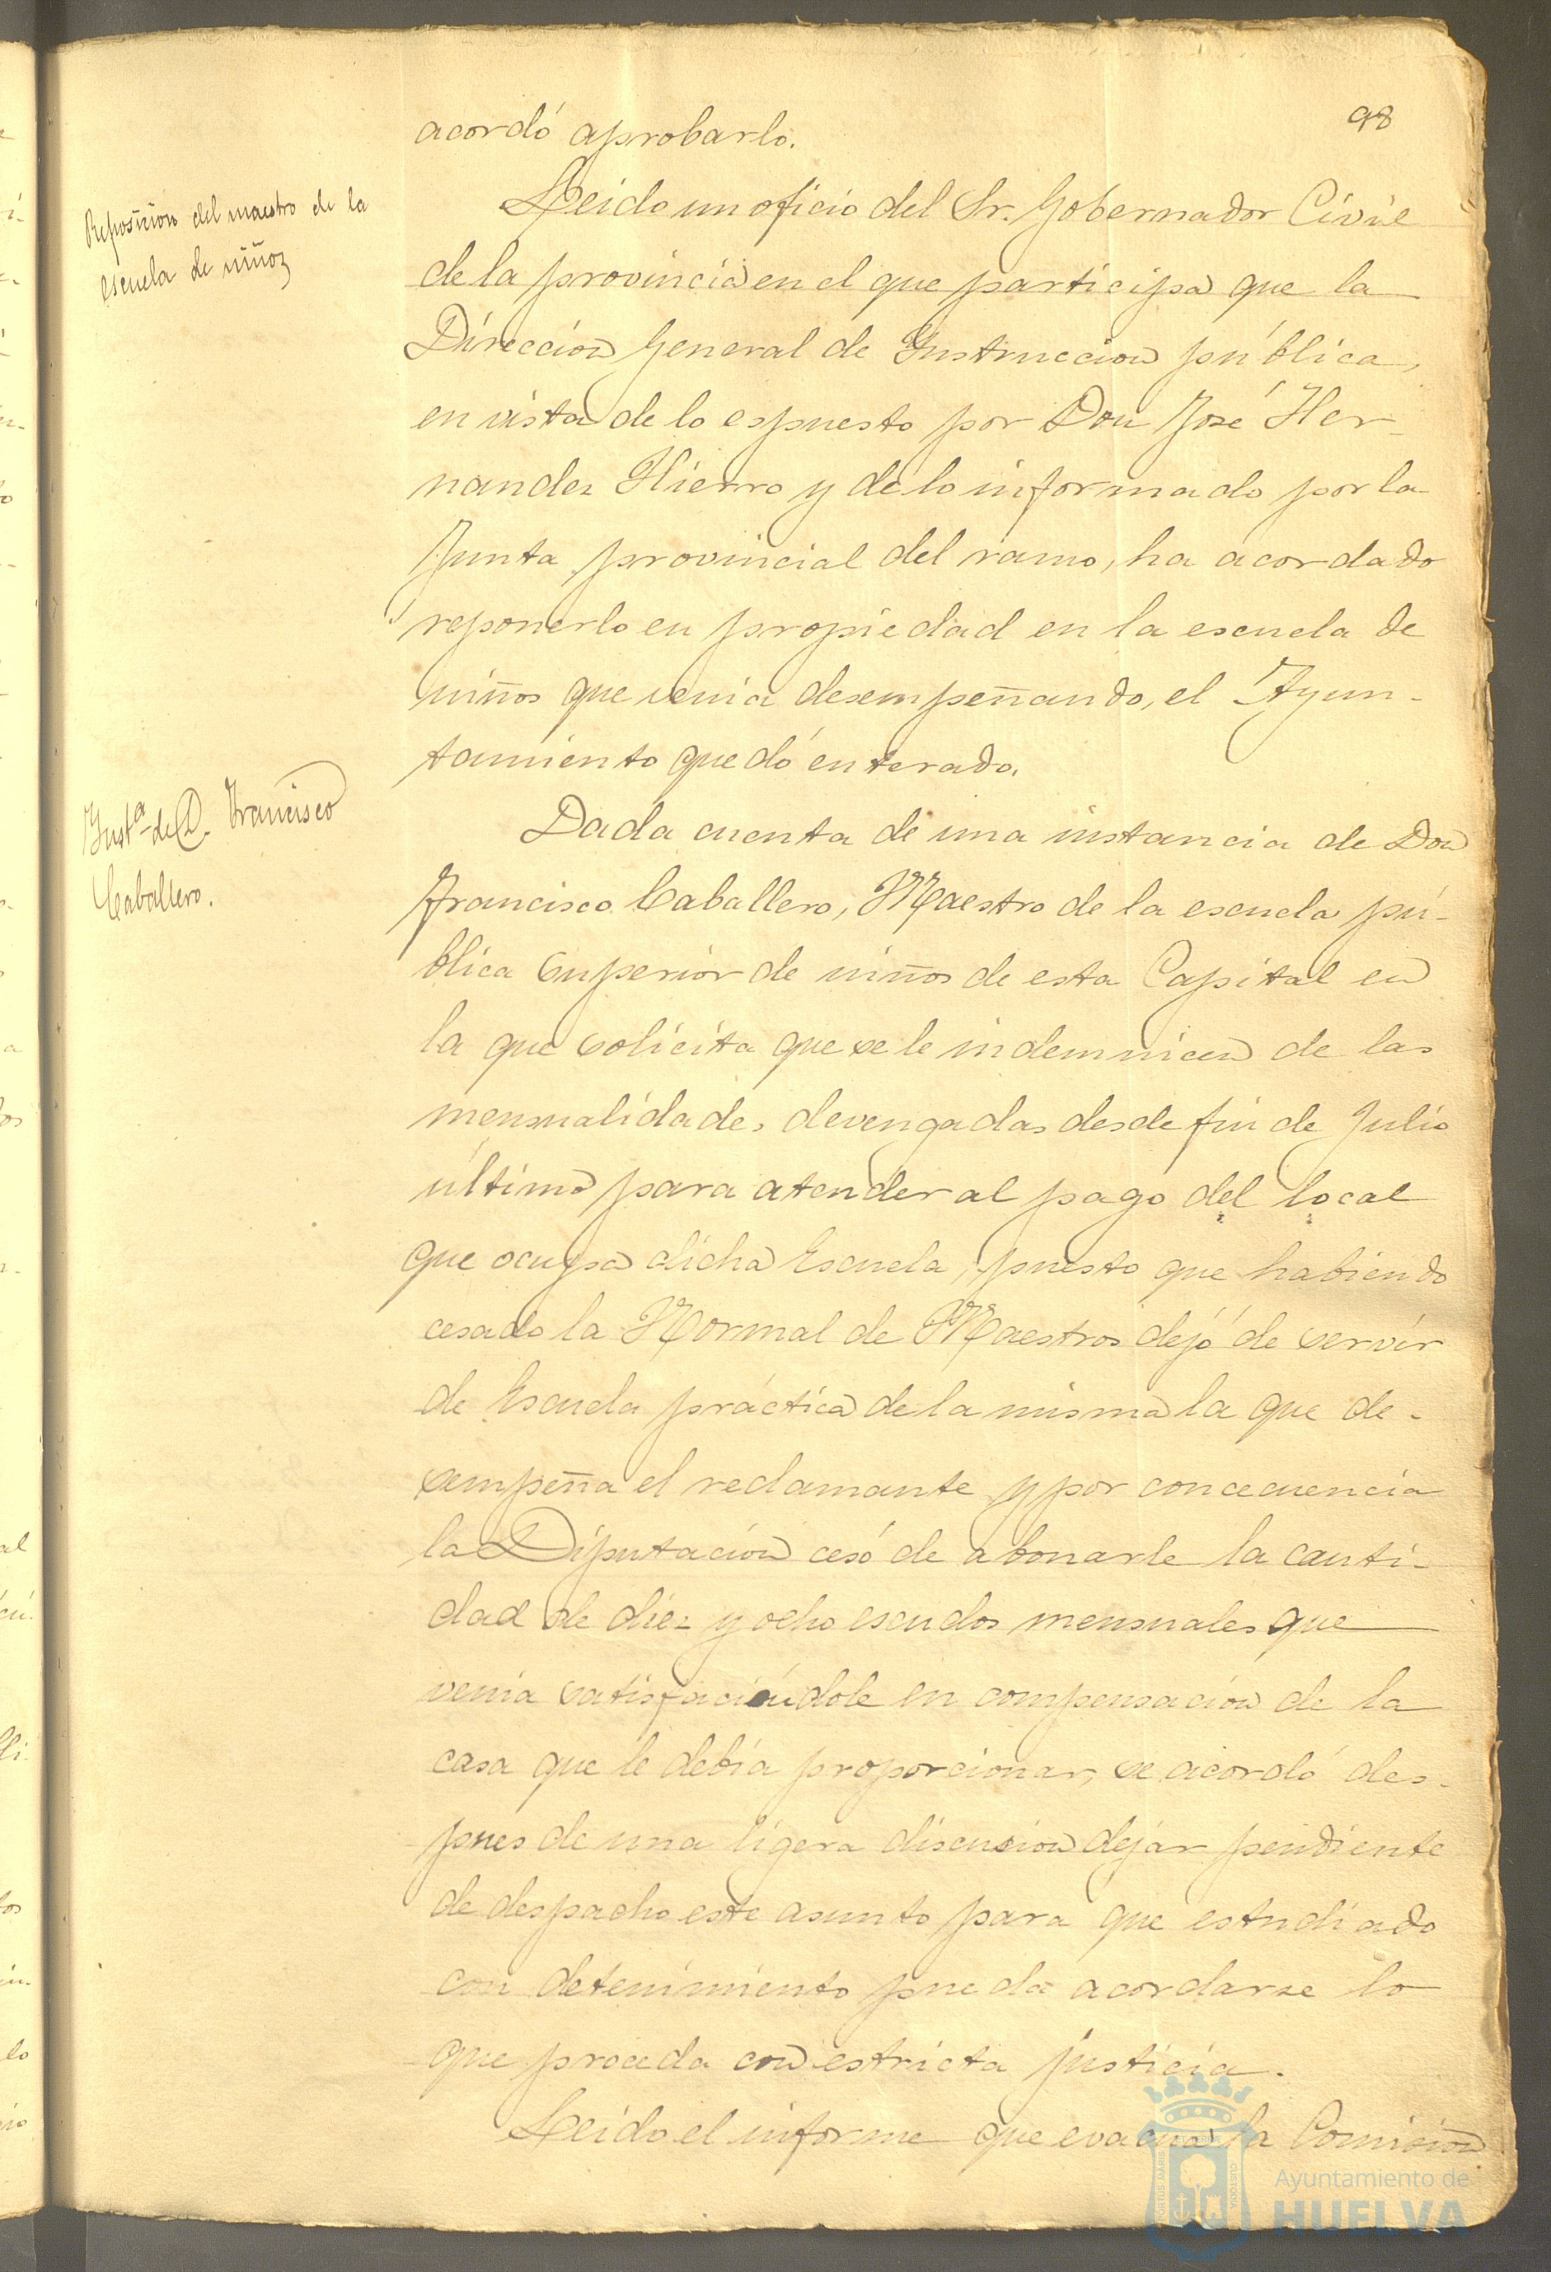 98
acordó aprobarlo.
Reposicion del maestro de la
escuela de niños
Leido un oficio del Sr. Gobernador Civil
de la provincia en el que participa que la
Direccion General de Instruccion pública,
en vista de lo espuesto por Don José Her-
nandez Hierro y de lo informado por la
Junta provincial del ramo, ha acordado
reponerlo en propiedad en la escuela de
niños que venia desempeñando, el Ayun-
tamiento quedó enterado.
Inst.ª de D. Francisco
Caballero.
Dada cuenta de una instancia de Don
Francisco Caballero, Maestro de la escuela pú-
blica Superior de niños de esta Capital en
la que solicita que se le indemnicen de las
mensualidades devengadas desde fin de Julio
último para atender al pago del local
que ocupa dicha Escuela, puesto que habiendo
cesado la Normal de Maestros dejó de servir
de Escuela práctica de la misma la que de-
sempeña el reclamante y por concecuencia
la Diputación cesó de abonarle la canti-
dad de diez y ocho escudos mensuales que
venia satisfaciéndole en compensación de la
casa que le debía proporcionar, se acordó des-
pues de una ligera discusion dejar pendiente
de despacho este asunto para que estudiado
con detenimiento pueda acordarse lo
que proceda con estricta justicia.
Leido el informe que evacua la Comision
Ayuntamiento de
HUELVA